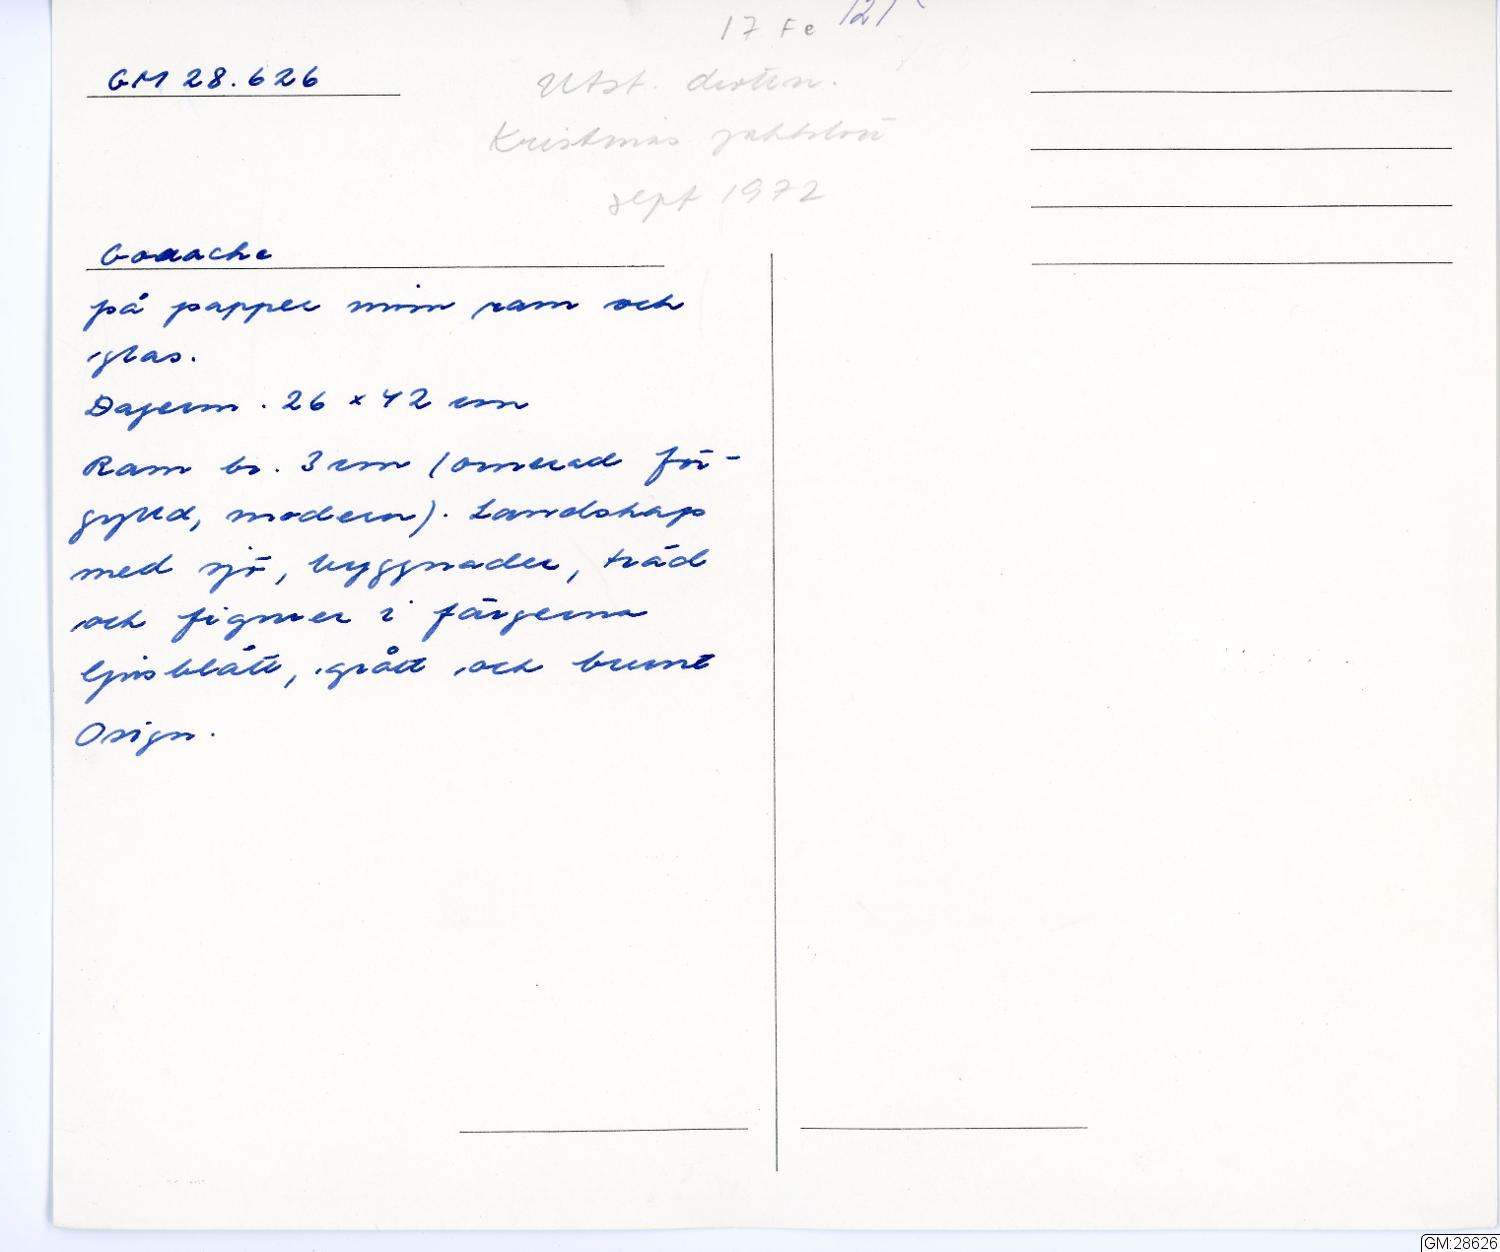 17 Fe 121
GM 28.626
Utst.
Kristinas jaktslott
sept 1972
Gouache
på papper inom ram och
glas.
Dagerm. 26 x 42 cm
Ram br. 3 cm (ornerad för-
gylld, modern). Landskap
med sjö, byggnader, träd
och figurer i färgerna
ljusblått, grått och brunt
Osign.
GM:28626